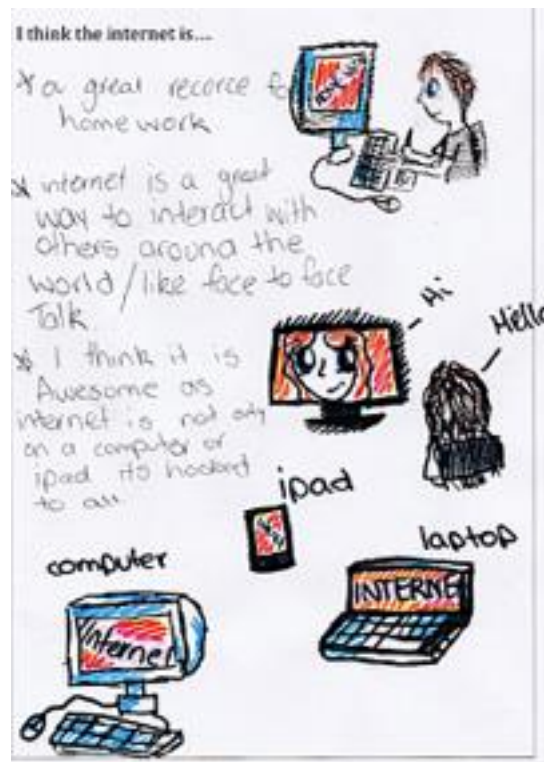 I think the internet is...
* a great recorce fo
homework
* internet is a great
way to interact with
others around the
world/like face to face
Talk
Hi
Hello
* I think it is
Awesome as
internet is not only
on a computer or
ipad its hooked
to all
ipad
laptop
computer
INTERNET
Internet